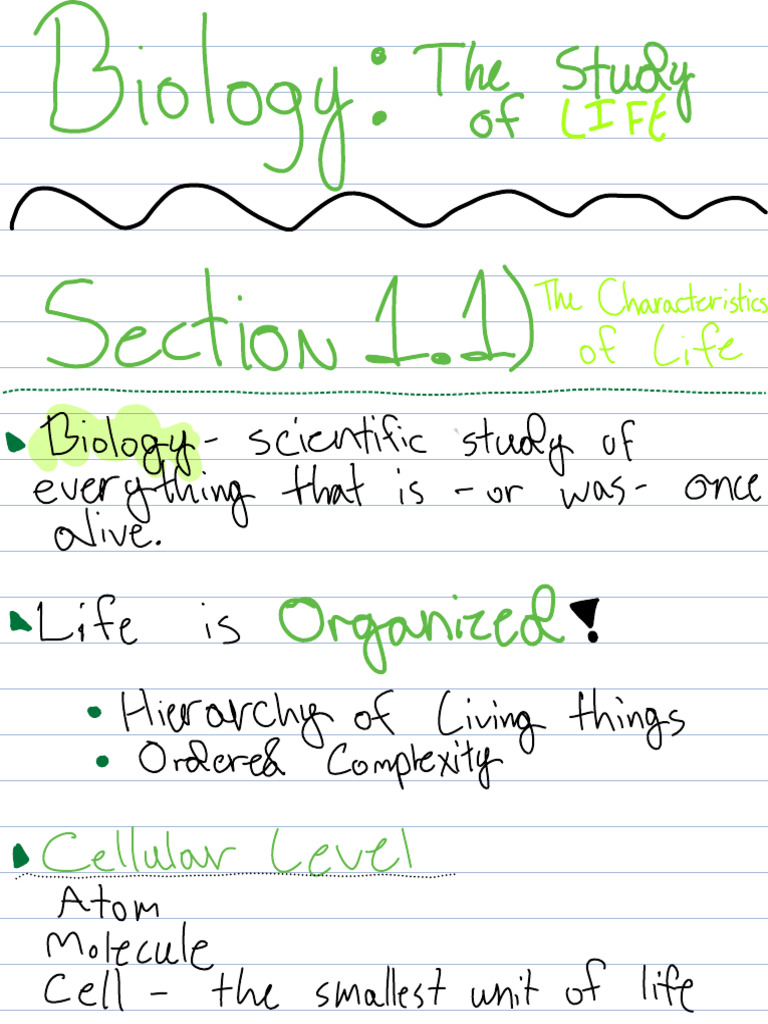 Biology: The Study
of LIFE
Section 1.1) The Characteristics
of Life
Biology - scientific study of
everything that is -or was- once
alive.
Life is Organized!
• Hierarchy of Living things
• Ordered Complexity
Cellular Level
Atom
Molecule
Cell - the smallest unit of life